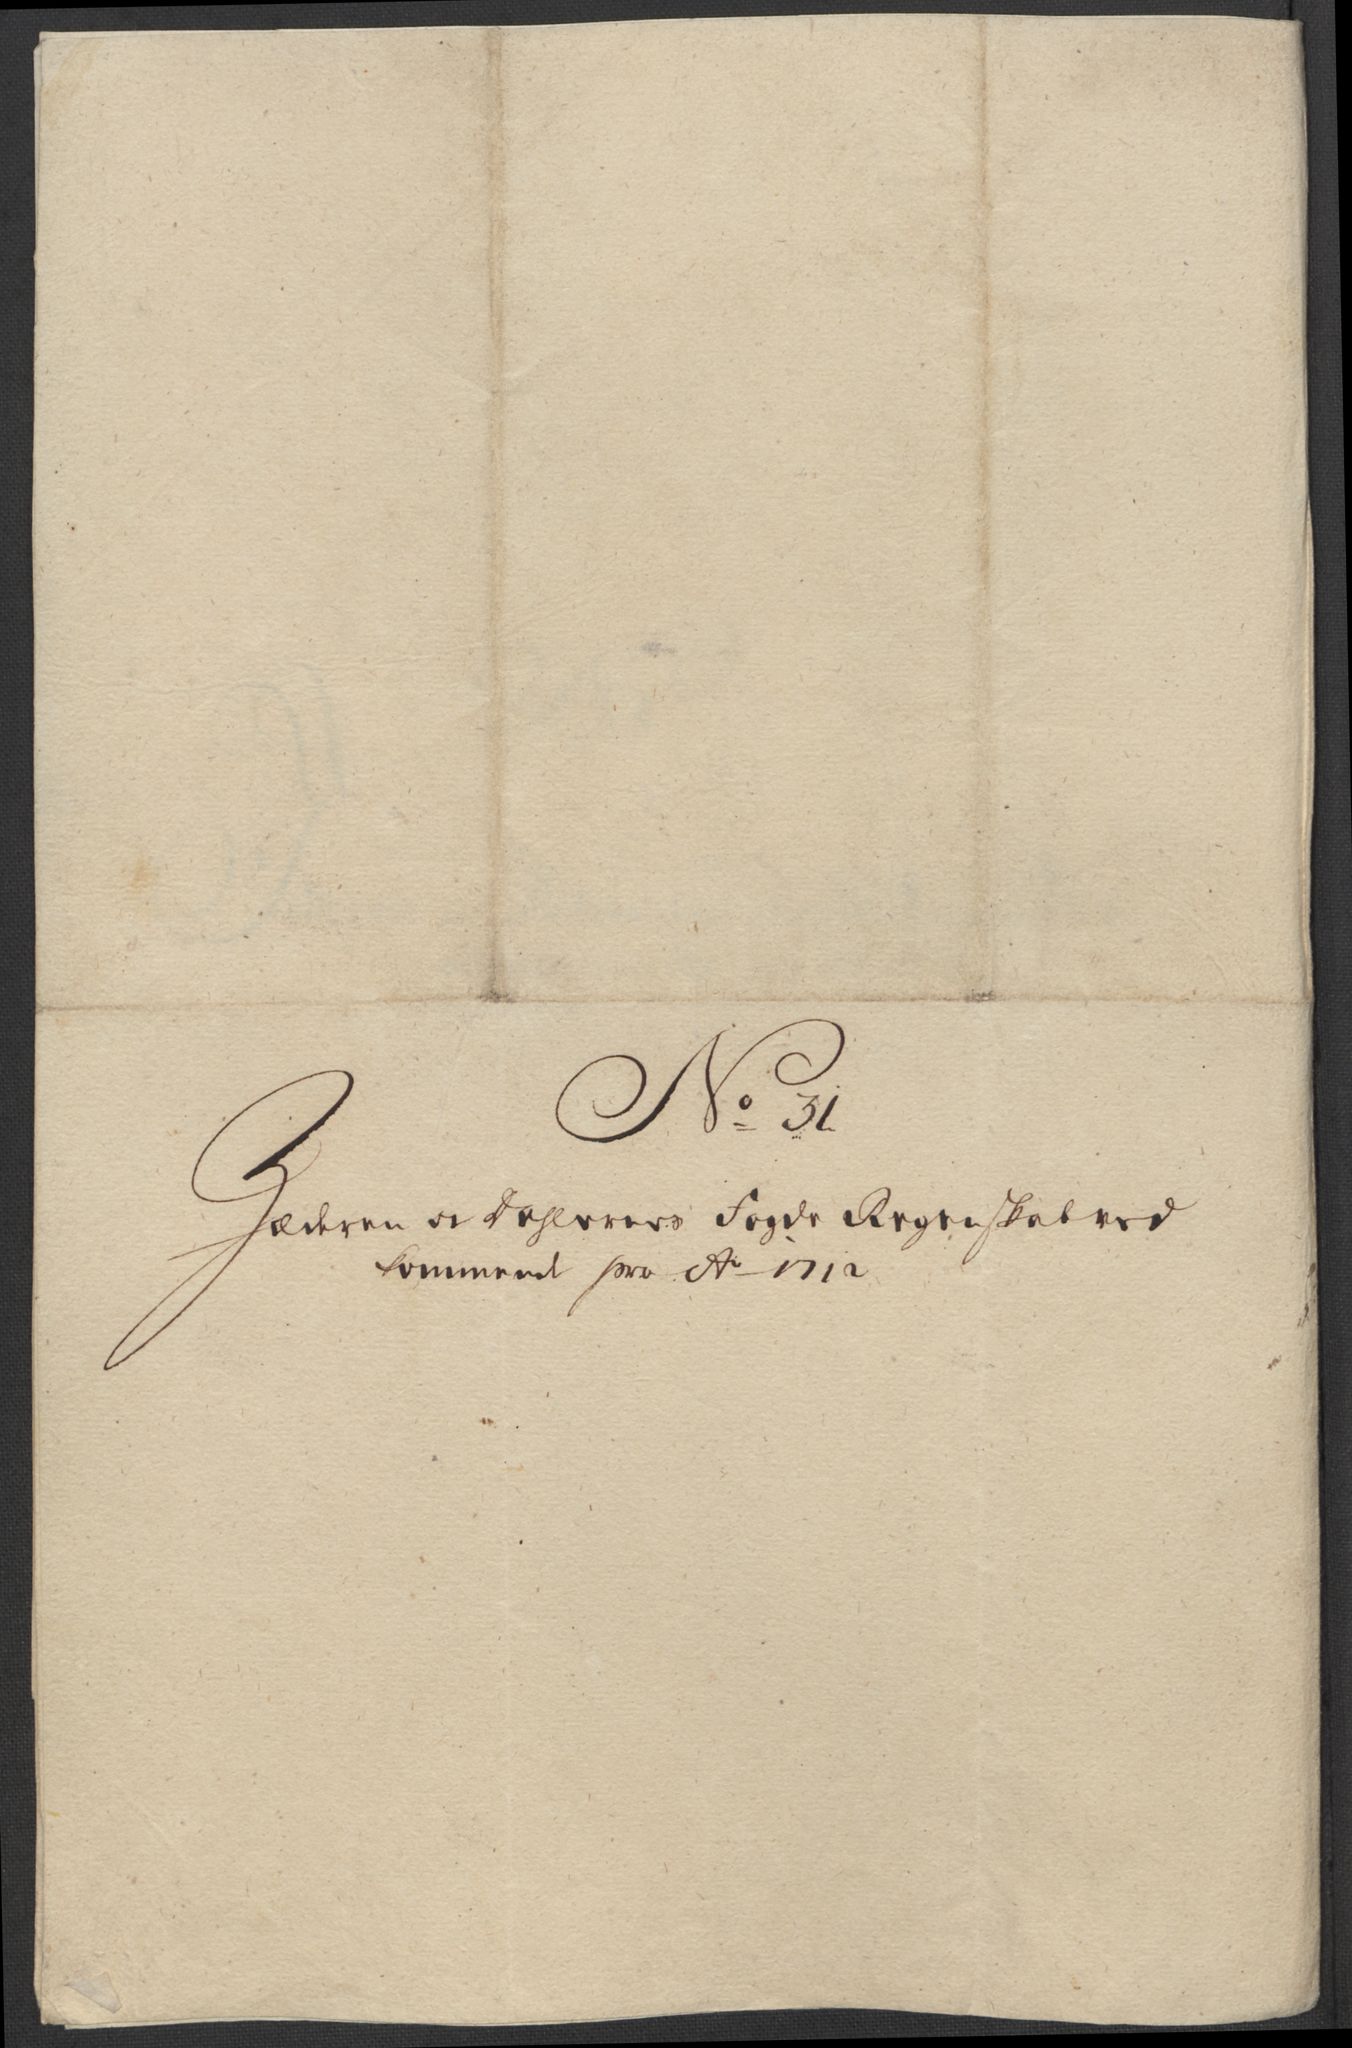 No 31
Jæderen og Dahlernes Fogde Regenskab ved
kommend pro Ao 1712